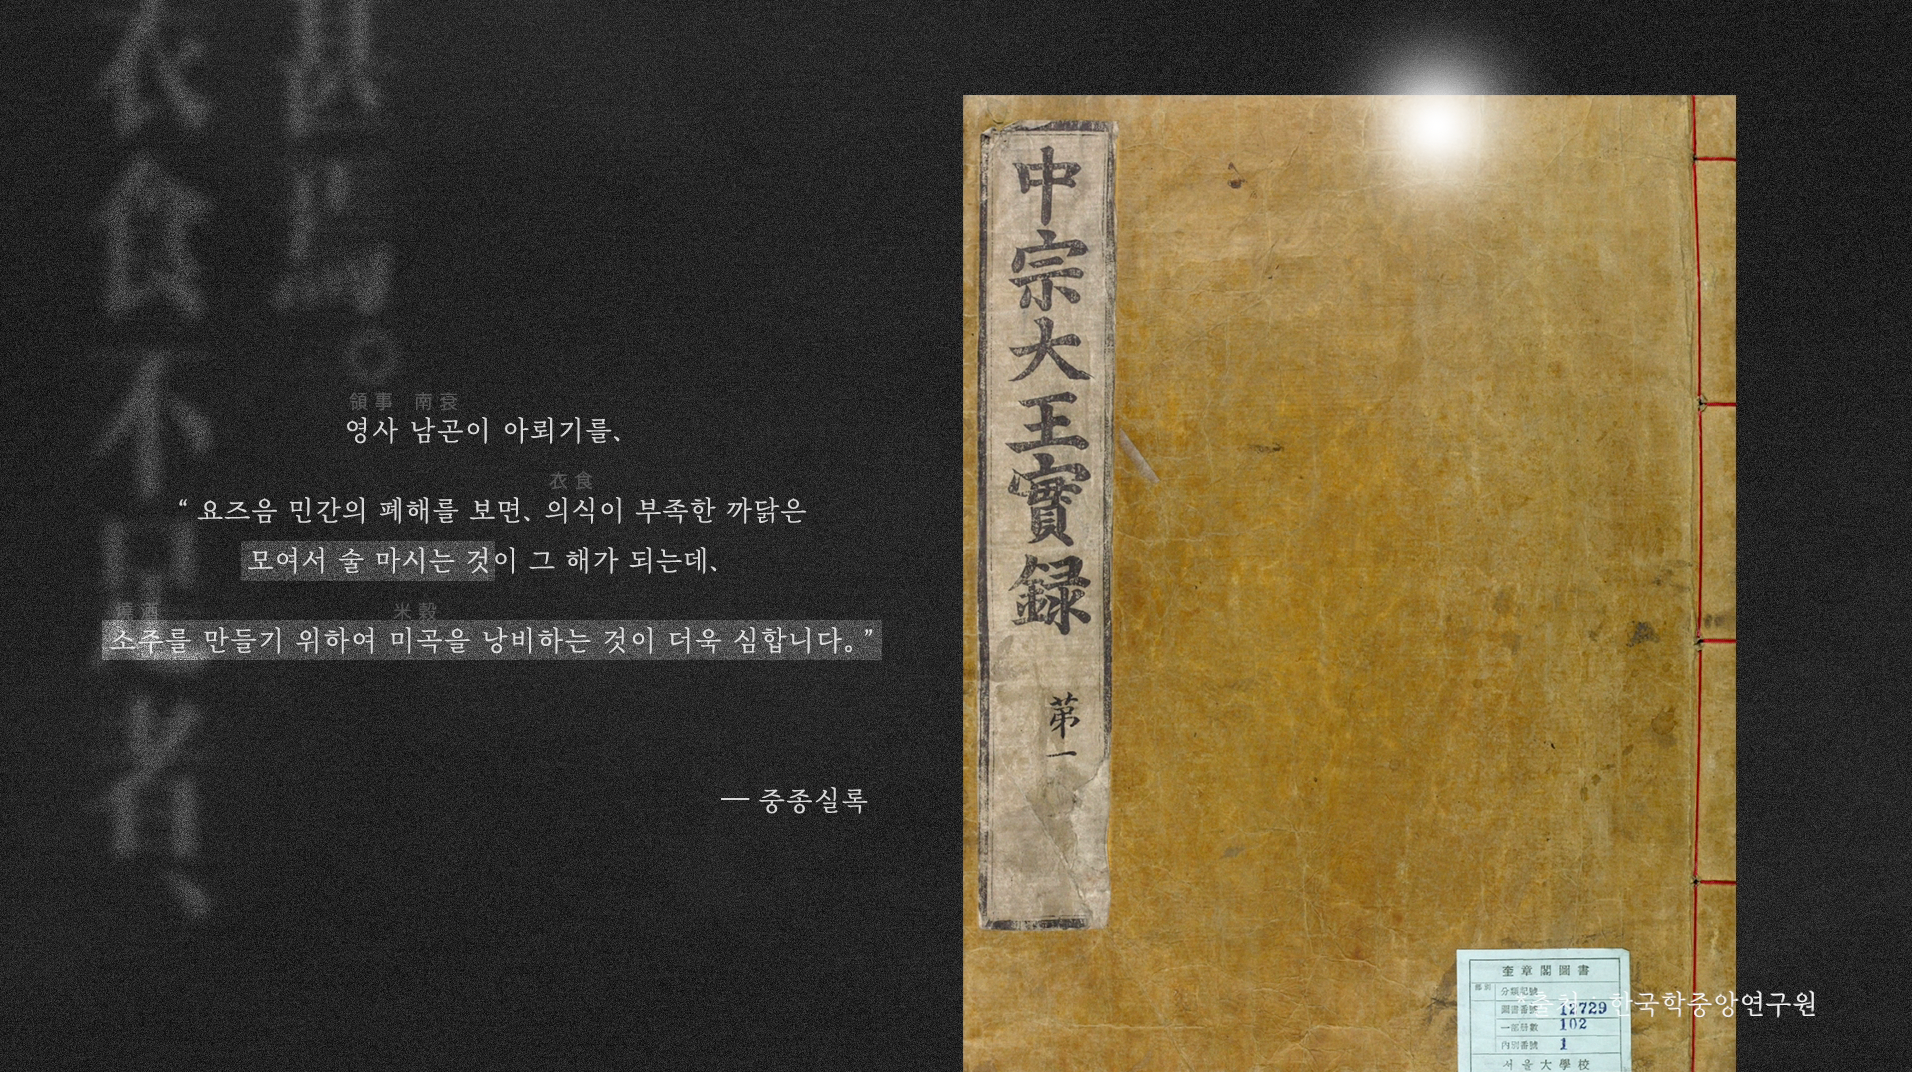 衣食不足者、
領事 南袞
영사 남곤이 아뢰기를、
衣食
“ 요즈음 민간의 폐해를 보면、의식이 부족한 까닭은
모여서 술 마시는 것이 그 해가 되는데、
燒酒 米穀
소주를 만들기 위하여 미곡을 낭비하는 것이 더욱 심합니다。”
— 중종실록
中宗大王實録
苐一
奎章閣圖書
分類記號
圖書番號 12729
一部冊數 102
內別番號 1
서울大學校
한국학중앙연구원